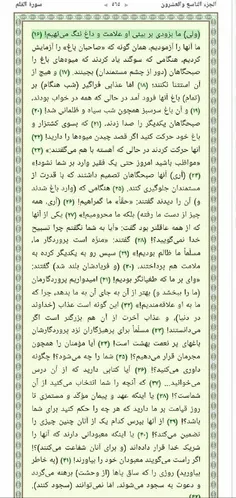 الجزء التاسع والعشرون - ٥٦٥ - سورة القلم
(ولی) ما بزودی بر بینی او علامت و داغ ننگ می‌نهیم! (۱۶)
ما آنها را آزمودیم، همان گونه که «صاحبان باغ» را آزمایش
کردیم، هنگامی که سوگند یاد کردند که میوه‌های باغ را
صبحگاهان (دور از چشم مستمندان) بچینند. (۱۷) و هیچ از
آن استثنا نکنند؛ (۱۸) اما عذابی فراگیر (شب هنگام) بر
(تمام) باغ آنها فرود آمد در حالی که همه در خواب بودند،
(۱۹) و آن باغ سرسبز همچون شب سیاه و ظلمانی شد! (۲۰)
صبحگاهان یکدیگر را صدا زدند، (۲۱) که بسوی کشتزار و
باغ خود حرکت کنید اگر قصد چیدن میوه‌ها را دارید! (۲۲)
آنها حرکت کردند در حالی که آهسته با هم می‌گفتند: (۲۳)
«مواظب باشید امروز حتی یک فقیر وارد بر شما نشود!»
(۲۴) (آری) آنها صبحگاهان تصمیم داشتند که با قدرت از
مستمندان جلوگیری کنند. (۲۵) هنگامی که (وارد باغ شدند
و) آن را دیدند گفتند: «حقاً» ما گمراهیم! (۲۶) (آری، همه
چیز از دست ما رفته) بلکه ما محرومیم!» (۲۷) یکی از آنها
که از همه عاقلتر بود گفت: «آیا به شما نگفتم چرا تسبیح
خدا نمی‌گویید؟! (۲۸) گفتند: «منزّه است پروردگار ما،
مسلماً ما ظالم بودیم!» (۲۹) سپس رو به یکدیگر کرده به
ملامت هم پرداختند، (۳۰) (و فریادشان بلند شد) گفتند:
«وای بر ما که طغیانگر بودیم! (۳۱) امیدواریم پروردگارمان
(ما را ببخشد و) بهتر از آن به جای آن به ما بدهد، چرا که
ما به او علاقه‌مندیم!» (۳۲) این گونه است عذاب (خداوند
در دنیا)، و عذاب آخرت از آن هم بزرگتر است اگر
می‌دانستند! (۳۳) مسلماً برای پرهیزگاران نزد پروردگارشان
باغهای پر نعمت بهشت است! (۳۴) آیا مؤمنان را همچون
مجرمان قرار می‌دهیم؟! (۳۵) شما را چه می‌شود؟! چگونه
داوری می‌کنید؟! (۳۶) آیا کتابی دارید که از آن درس
می‌خوانید... (۳۷) که آنچه را شما انتخاب می‌کنید از آن
شماست؟! (۳۸) یا اینکه عهد و پیمان مؤکّد و مستمری تا
روز قیامت بر ما دارید که هر چه را حکم کنید برای شما
باشد؟! (۳۹) از آنها بپرس کدام یک از آنان چنین چیزی را
تضمین می‌کند؟! (۴۰) یا اینکه معبودانی دارند که آنها را
شریک خدا قرار داده‌اند (و برای آنان شفاعت می‌کنند)؟!
اگر راست می‌گویند معبودان خود را بیاورند! (۴۱) (به خاطر
بیاورید) روزی را که ساق پاها (از وحشت) برهنه می‌گردد
و دعوت به سجود می‌شوند، اما نمی‌توانند (سجود کنند).